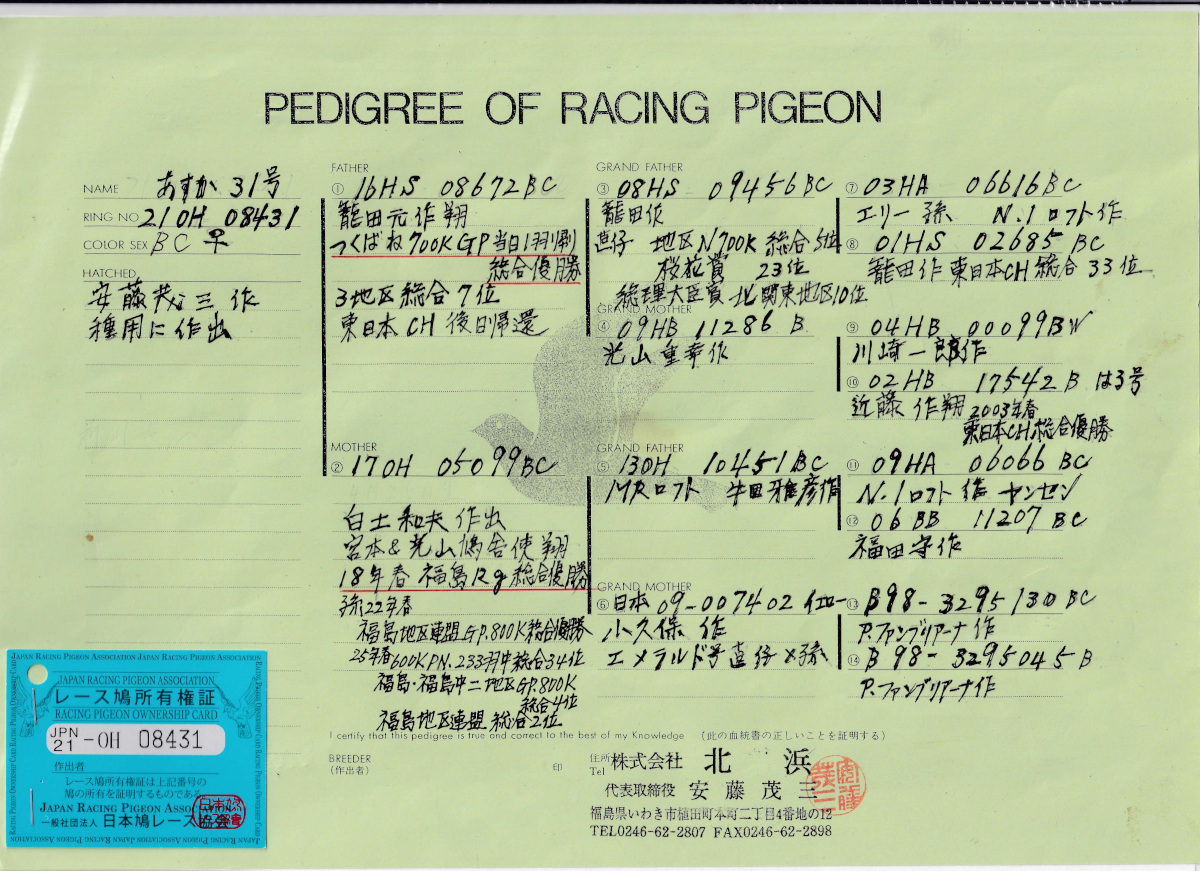 PEDIGREE OF RACING PIGEON
NAME あすか 31号
RING NO 21OH 08431
COLOR SEX BC ♀
HATCHED
安藤茂三作
種用に作出
FATHER
① 16HS 08672BC
籠田元作翔
つくばね700K GP当日1羽帰り
総合優勝
3地区総合7位
東日本CH 後日帰還
MOTHER
② 17OH 05099BC
白土和夫作出
宮本&光山鳩舎使翔
18年春 福島Rg総合優勝
孫22年春
福島地区連盟GP.800K総合優勝
25年春600KPN.233羽中総合34位
福島・福島中二地区GP.800K
総合4位
福島地区連盟 総合2位
GRAND FATHER
③ 08HS 09456BC
籠田作
直仔 地区N700K 総合5位
桜花賞 23位
総理大臣賞 北関東地区10位
GRAND MOTHER
④ 09HB 11286 B
光山重幸作
GRAND FATHER
⑤ 13OH 10451BC
MRロフト 牛田雅彦作
GRAND MOTHER
⑥ 日本 09-007402 イエロー
小久保作
エメラルド号直仔×孫
⑦ 03HA 06616BC
エリー孫 N.1ロフト作
⑧ 01HS 02685 BC
籠田作 東日本CH総合33位
⑨ 04HB 00099BW
川崎一郎作
⑩ 02HB 17542B は3号
近藤作翔 2003年春
東日本CH総合優勝
⑪ 09HA 06066 BC
N.1ロフト作 ヤンセン
⑫ 06BB 11207 BC
福田守作
⑬ B98-3295130 BC
P.ファンブリアーナ作
⑭ B98-3295045 B
P.ファンブリアーナ作
I certify that this pedigree is true and correct to the best of my Knowledge (此の血統書の正しいことを証明する)
BREEDER
(作出者)
印
住所
Tel
株式会社 北浜
代表取締役 安藤茂三
福島県いわき市植田町本町二丁目4番地の12
TEL0246-62-2807 FAX0246-62-2898
JAPAN RACING PIGEON ASSOCIATION JAPAN RACING PIGEON ASSOCIATION
JAPAN RACING PIGEON ASSOCIATION
レース鳩所有権証
RACING PIGEON OWNERSHIP CARD
JPN
21 -OH 08431
作出者
レース鳩所有権証は上記番号の
鳩の所有を証明するものである
JAPAN RACING PIGEON ASSOCIATION
一般社団法人 日本鳩レース協会